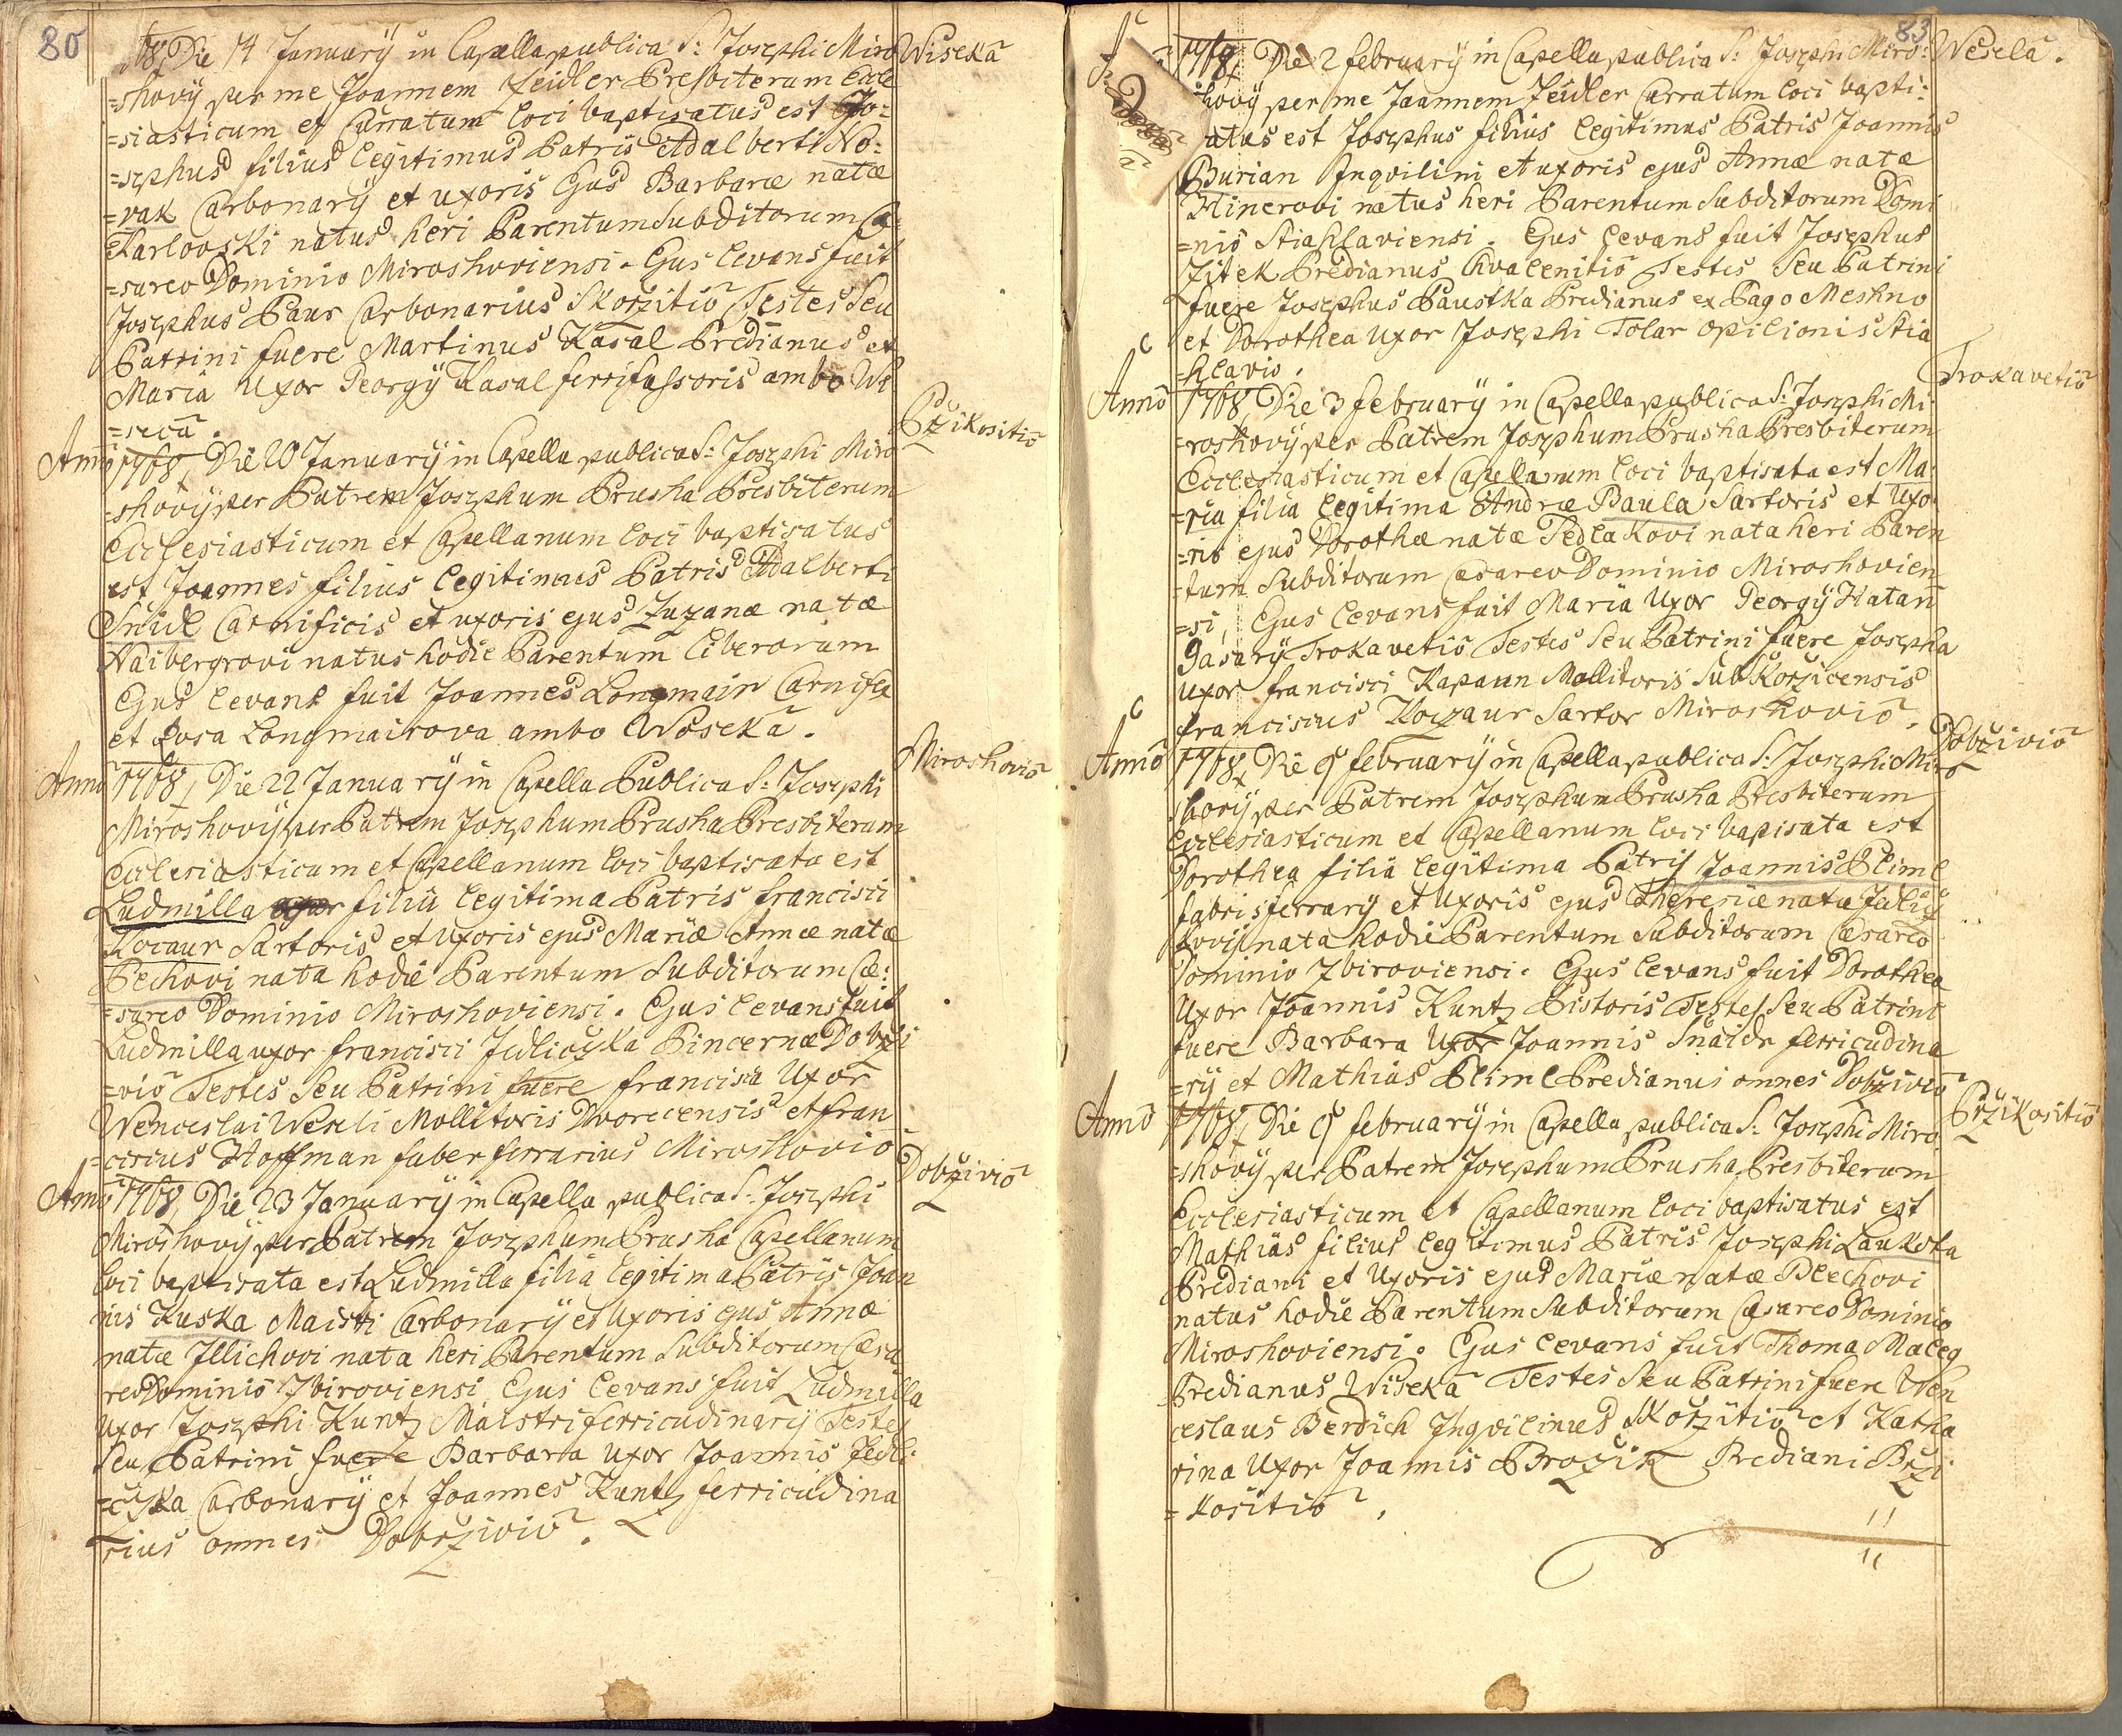 80
68 Die 14 January in Capella publica S: Josephi Miro Wiseka
=shovy per me Joannem Zeidler Presbiterum Eccle
=siasticum et Curratum loci baptisatus est Jo:
=sephus filius legitimus Patris Adalberti No:
=vak Carbonary et uxoris Ejus Barbaræ natæ
Karlovski natus heri Parentum Subditorum Cæ:
=sareo Dominio Miroshoviensi. Ejus levans fuit
Josephus Baur Carbonarius Skorzitio Testes Seu
Patrini fuere Martinus Kasal Predianus et
Maria Uxor Georgy Kasal ferrifussoris ambo We
=seca.
Przikositio
Anno 1768, Die 20 January in Capella publica S: Josephi Miro
=shovy per Patrem Josephum Prusha Presbiterum
Ecclesiasticum et Capellanum loci baptisatus
est Joannes filius legitimus Patris Adalberti
Snidl Carnificis et uxoris ejus Zuzanæ natæ
Naibergrovi natus hodie Parentum liberorum
Ejus levans fuit Joannes Longmain Carnifex
et Rosa Longmairova ambo Woseka.
Miroshovio
Anno 1768, Die 22 January in Capella Publica S: Josephi
Miroshovy per Patrem Josephum Prusha Presbiterum
Ecclesiasticum et Capellanum loci baptisata est
Ludmilla filia legitima Patris francisci
Kocaur Sartoris et Uxoris ejus Mariæ Annæ natæ
Pechovi nata hodie Parentum Subditorum Cæ:
=sareo Dominio Miroshoviensi. Ejus levans fuit
Ludmilla uxor francisci Jedliczka Pincernæ Dobrzi
=vio Testes Seu Patrini fuere francisca Uxor
Wenceslai Weseli Mollitoris Dvorecensis et fran
=ciscus Hoffman faber ferrarius Miroshovio
Dobrzivio
Anno 1768, Die 23 January in Capella publica S: Josephi
Miroshovy per Patrem Josephum Prusha Capellanum
loci baptisata est Ludmilla filia legitima Patris Joan
nis Kuska Maistri Carbonary et Uxoris ejus Annæ
natæ Illichovi nata heri Parentum Subditorum Cæsa
reo Dominio Zbiroviensi Ejus levans fuit Ludmilla
Uxor Josephi Kuntz Maistri ferricudinary Testes
Seu Patrini fuere Barbara Uxor Joannis Jedli
=czka Carbonary et Joannes Kuntz ferricudina
rius omnes Dobrzivio.
83
1768 Die 2 february in Capella publica S: Josephi Miro: Wesela.
hovy per me Joannem Zeidler Curratum loci bapti:
atus est Josephus filius legitimus Patris Joannis
Burian Inqvilini et uxoris ejus Annæ natæ
Hinerovi natus heri Parentum Subditorum Domi
=nio Stiahlaviensi. Ejus levans fuit Josephus
Zitek Predianus Chvalenitio Testes Seu Patrini
fuere Josephus Paustka Predianus ex Pago Meshno
et Dorothea Uxor Josephi Tolar Opilionis Stia
=hlavio.
Trokavetio
Anno 1768, Die 3 february in Capella publica S: Josephi Mi
=roshovy per Patrem Josephum Prusha Presbiterum
Ecclesiasticum et Capellanum loci baptisata est Ma:
=ria filia legitima Andreæ Paula Sartoris et Uxo
=ris ejus Dorothæ natæ Sedlakovi nata heri Paren
=tum Subditorum Cæsareo Dominio Miroshovien
=si, Ejus levans fuit Maria Uxor Georgy Hatan
Casary Trokavetio Testes Seu Patrini fuere Josepha
Uxor francisci Kapaun Mollitoris Sub Korzicensis
franciscus Koczaur Sartor Miroshovio.
Dobrzivio
Anno 1768 Die 9 february in Capella publica S: Josephi Miro
shovy per Patrem Josephum Prusha Presbiterum
Ecclesiasticum et Capellanum loci bapisata est
Dorothea filia legitima Patris Joannis Bliml
fabri ferrary et Uxoris ejus Theresiæ natæ
nata hodie Parentum Subditorum Cæsareo
Dominio Zbiroviensi. Ejus levans fuit Dorothea
Uxor Joannis Kuntz Pistoris Testes Seu Patrini
fuere Barbara Uxor Joannis Snaidr ferricudina
=ry et Mathias Bliml Predianus omnes Dobrzivio
Przikositio
Anno 1768, Die 9 february in Capella publica S: Josephi Miro
=shovy per Patrem Josephum Prusha Presbiterum
Ecclesiasticum et Capellanum loci baptisatus est
Mathias filius legitimus Patris Josephi Laukota
Prediani et Uxoris ejus Mariæ natæ Blechovi
natus hodie Parentum Subditorum Cæsareo Dominio
Miroshoviensi. Ejus levans fuit Thoma Maleg
Predianus Wiseka Testes Seu Patrini fuere Wen
ceslaus Berdich Inqvilinus Skorzitio et Katha
rina Uxor Joannis Brozik Prediani Przi
=kositio.